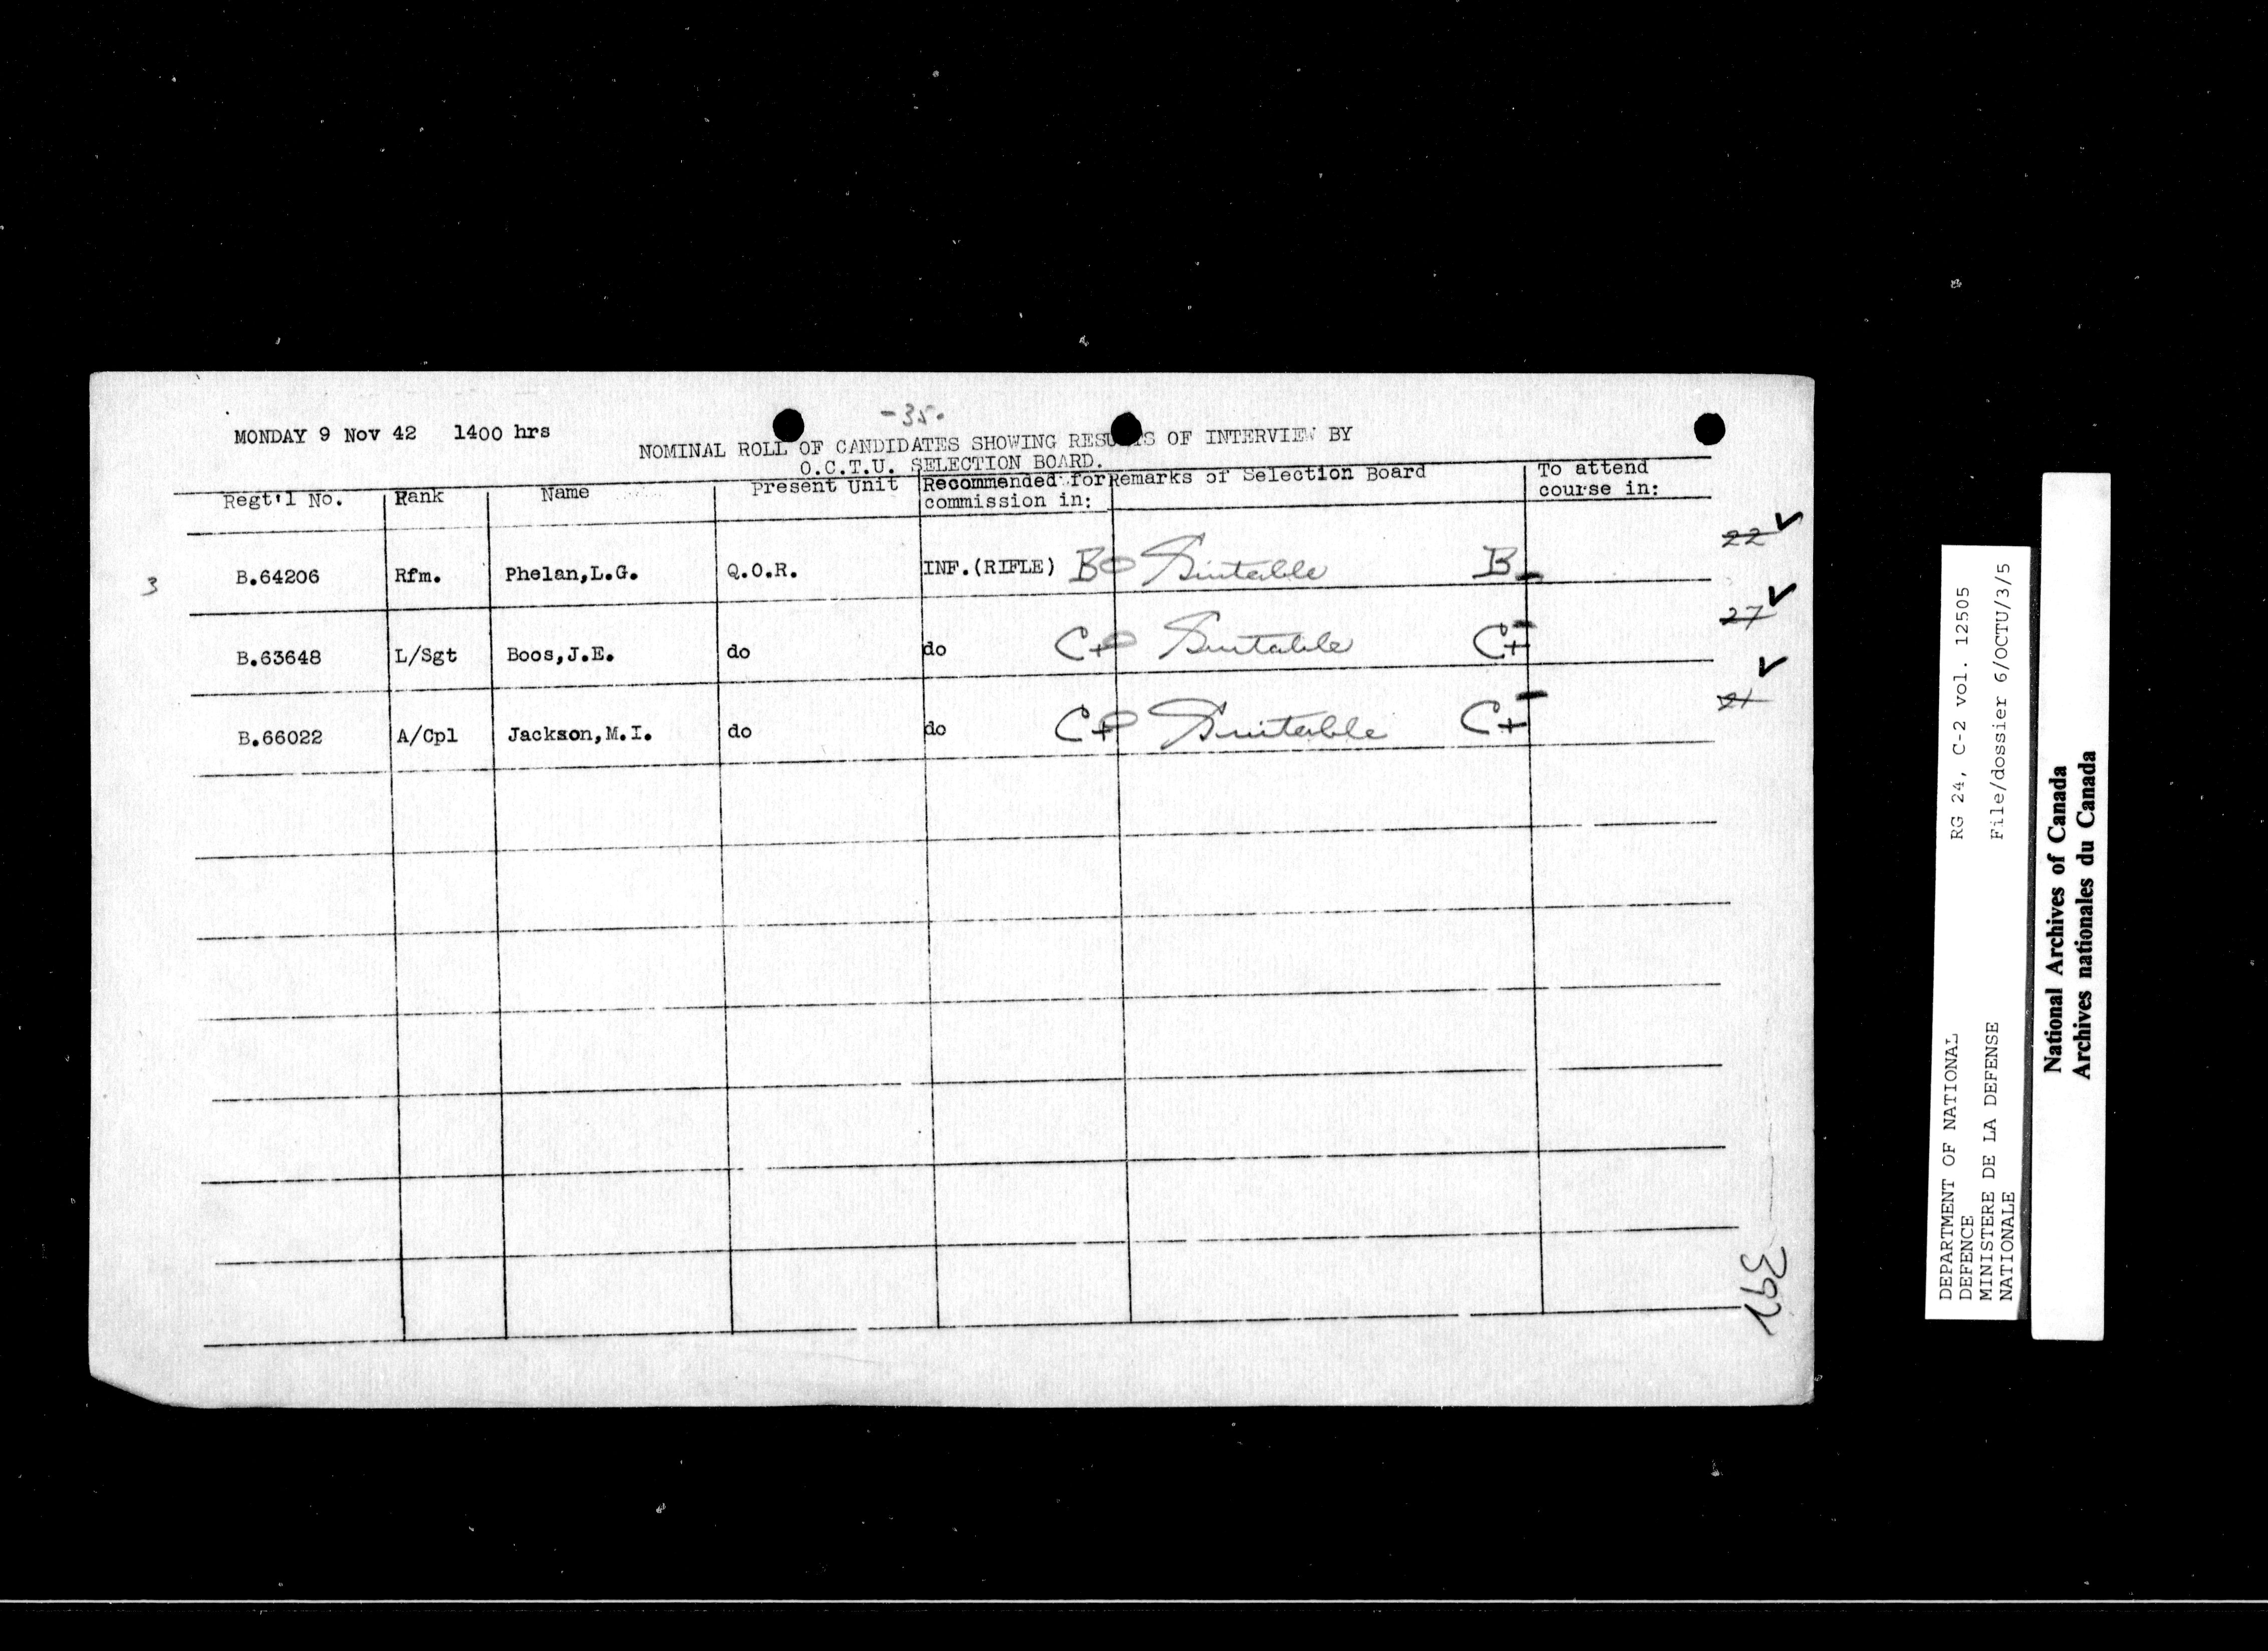 -35-
MONDAY 9 Nov 42 1400 hrs
NOMINAL ROLL OF CANDIDATES SHOWING RESULTS OF INTERVIEW BY
O.C.T.U. SELECTION BOARD.
Regt'l No. Rank Name Present Unit Recommended for commission in: Remarks of Selection Board To attend course in:
22 ✓
3 B.64206 Rfm. Phelan,L.G. Q.O.R. INF.(RIFLE) B Suitable B
27 ✓
B.63648 L/Sgt Boos,J.E. do do C+ Suitable C+
21 ✓
B.66022 A/Cpl Jackson,M.I. do do C+ Suitable C+
397
DEPARTMENT OF NATIONAL
DEFENCE
MINISTERE DE LA DEFENSE
NATIONALE
RG 24, C-2 vol. 12505
File/dossier 6/OCTU/3/5
National Archives of Canada
Archives nationales du Canada